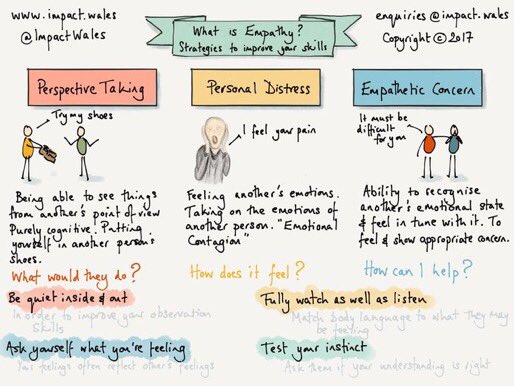 www.impact.wales
@ImpactWales
What is Empathy?
Strategies to improve your skills
enquiries@impact.wales
Copyright © 2017
Perspective Taking
Try my shoes
Being able to see things
from another's point of view
Purely cognitive. Putting
yourself in another person's
shoes.
What would they do?
Personal Distress
I feel your pain
Feeling another's emotions.
Taking on the emotions of
another person. "Emotional
Contagion"
How does it feel?
Empathetic Concern
It must be
difficult
for you
Ability to recognise
another's emotional state
& feel in tune with it. To
feel & show appropriate concern.
How can I help?
Be quiet inside & out
In order to improve your observation
skills
Fully watch as well as listen
Match body language to what they may
be feeling
Ask yourself what you're feeling
You feelings often reflect other's feelings
Test your instinct
Ask them if your understanding is right